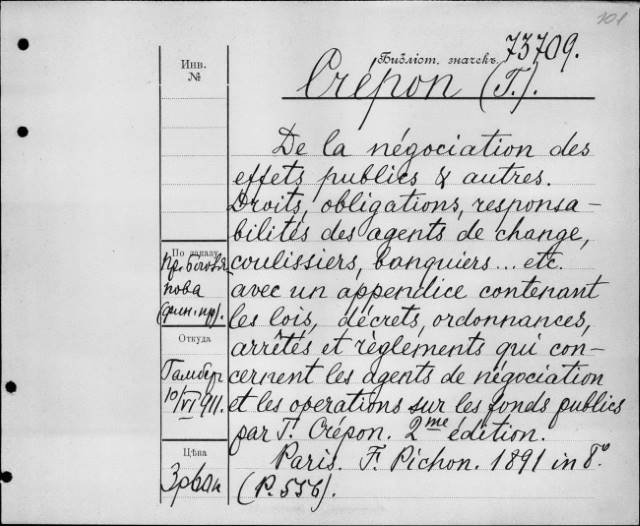 101
Библіот. значекъ 73709.
Инв.
№
Crépon (T.).
De la négociation des
effets publics & autres.
Droits, obligations, responsa-
bilités des agents de change,
coulissiers, banquiers... etc.
avec un appendice contenant
les lois, décrets, ordonnances,
arrêtés et règlements qui con-
cernent les agents de négociation
et les operations sur les fonds publics
par T. Crépon. 2me édition.
Paris. F. Pichon. 1891 in 8°
(P. 556).
По заказу
пова
(фин. пр).
Откуда
Гамбер
10/VI 911.
Цѣна
3р 60к